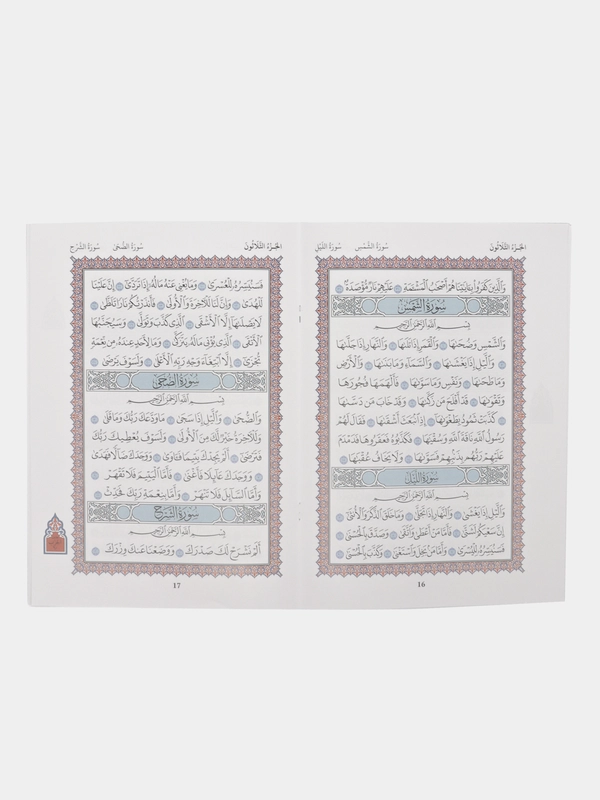 الجزء الثلاثون
سورة الشمس
سورة الليل
وَٱلَّذِينَ كَفَرُوا۟ بِـَٔايَـٰتِنَا هُمْ أَصْحَـٰبُ ٱلْمَشْـَٔمَةِ ١٩ عَلَيْهِمْ نَارٌ مُّؤْصَدَةٌۢ ٢٠
سورة الشمس
بِسْمِ ٱللَّهِ ٱلرَّحْمَـٰنِ ٱلرَّحِيمِ
وَٱلشَّمْسِ وَضُحَىٰهَا ١ وَٱلْقَمَرِ إِذَا تَلَىٰهَا ٢ وَٱلنَّهَارِ إِذَا جَلَّىٰهَا
٣ وَٱلَّيْلِ إِذَا يَغْشَىٰهَا ٤ وَٱلسَّمَآءِ وَمَا بَنَىٰهَا ٥ وَٱلْأَرْضِ
وَمَا طَحَىٰهَا ٦ وَنَفْسٍ وَمَا سَوَّىٰهَا ٧ فَأَلْهَمَهَا فُجُورَهَا
وَتَقْوَىٰهَا ٨ قَدْ أَفْلَحَ مَن زَكَّىٰهَا ٩ وَقَدْ خَابَ مَن دَسَّىٰهَا
١٠ كَذَّبَتْ ثَمُودُ بِطَغْوَىٰهَآ ١١ إِذِ ٱنۢبَعَثَ أَشْقَىٰهَا ١٢ فَقَالَ لَهُمْ
رَسُولُ ٱللَّهِ نَاقَةَ ٱللَّهِ وَسُقْيَـٰهَا ١٣ فَكَذَّبُوهُ فَعَقَرُوهَا فَدَمْدَمَ
عَلَيْهِمْ رَبُّهُم بِذَنۢبِهِمْ فَسَوَّىٰهَا ١٤ وَلَا يَخَافُ عُقْبَـٰهَا ١٥
سورة الليل
بِسْمِ ٱللَّهِ ٱلرَّحْمَـٰنِ ٱلرَّحِيمِ
وَٱلَّيْلِ إِذَا يَغْشَىٰ ١ وَٱلنَّهَارِ إِذَا تَجَلَّىٰ ٢ وَمَا خَلَقَ ٱلذَّكَرَ وَٱلْأُنثَىٰٓ
٣ إِنَّ سَعْيَكُمْ لَشَتَّىٰ ٤ فَأَمَّا مَنْ أَعْطَىٰ وَٱتَّقَىٰ ٥ وَصَدَّقَ بِٱلْحُسْنَىٰ
٦ فَسَنُيَسِّرُهُۥ لِلْيُسْرَىٰ ٧ وَأَمَّا مَنۢ بَخِلَ وَٱسْتَغْنَىٰ ٨ وَكَذَّبَ بِٱلْحُسْنَىٰ ٩
16
الجزء الثلاثون
سورة الضحى
سورة الشرح
فَسَنُيَسِّرُهُۥ لِلْعُسْرَىٰ ١٠ وَمَا يُغْنِى عَنْهُ مَالُهُۥٓ إِذَا تَرَدَّىٰٓ ١١ إِنَّ عَلَيْنَا
لَلْهُدَىٰ ١٢ وَإِنَّ لَنَا لَلْـَٔاخِرَةَ وَٱلْأُولَىٰ ١٣ فَأَنذَرْتُكُمْ نَارًا تَلَظَّىٰ ١٤
لَا يَصْلَىٰهَآ إِلَّا ٱلْأَشْقَى ١٥ ٱلَّذِى كَذَّبَ وَتَوَلَّىٰ ١٦ وَسَيُجَنَّبُهَا
ٱلْأَتْقَى ١٧ ٱلَّذِى يُؤْتِى مَالَهُۥ يَتَزَكَّىٰ ١٨ وَمَا لِأَحَدٍ عِندَهُۥ مِن نِّعْمَةٍ
تُجْزَىٰٓ ١٩ إِلَّا ٱبْتِغَآءَ وَجْهِ رَبِّهِ ٱلْأَعْلَىٰ ٢٠ وَلَسَوْفَ يَرْضَىٰ ٢١
سورة الضحى
بِسْمِ ٱللَّهِ ٱلرَّحْمَـٰنِ ٱلرَّحِيمِ
وَٱلضُّحَىٰ ١ وَٱلَّيْلِ إِذَا سَجَىٰ ٢ مَا وَدَّعَكَ رَبُّكَ وَمَا قَلَىٰ
٣ وَلَلْـَٔاخِرَةُ خَيْرٌ لَّكَ مِنَ ٱلْأُولَىٰ ٤ وَلَسَوْفَ يُعْطِيكَ رَبُّكَ
فَتَرْضَىٰٓ ٥ أَلَمْ يَجِدْكَ يَتِيمًا فَـَٔاوَىٰ ٦ وَوَجَدَكَ ضَآلًّا فَهَدَىٰ
٧ وَوَجَدَكَ عَآئِلًا فَأَغْنَىٰ ٨ فَأَمَّا ٱلْيَتِيمَ فَلَا تَقْهَرْ
٩ وَأَمَّا ٱلسَّآئِلَ فَلَا تَنْهَرْ ١٠ وَأَمَّا بِنِعْمَةِ رَبِّكَ فَحَدِّثْ ١١
سورة الشرح
بِسْمِ ٱللَّهِ ٱلرَّحْمَـٰنِ ٱلرَّحِيمِ
أَلَمْ نَشْرَحْ لَكَ صَدْرَكَ ١ وَوَضَعْنَا عَنكَ وِزْرَكَ ٢
17